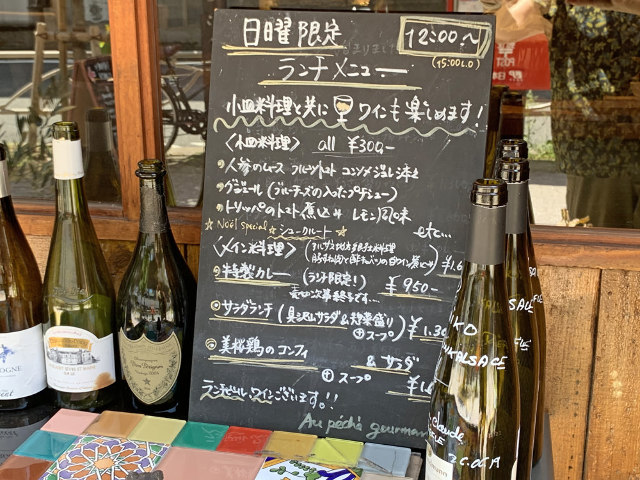 日曜限定
12:00〜
(15:00L.O)
ランチメニュー
小皿料理と共に ワインも楽しめます!
〈小皿料理〉 all ¥300-
人参のムース フルーツトマト コンソメジュレ添え
グジェール(ブルーチーズの入ったプチシュー)
トリッパのトマト煮込み レモン風味
Noël special シュークルート
etc...
〈メイン料理〉
(アルザス地方郷土料理
¥1.6
特製カレー (ランチ限定!) ¥950-
売切れ次第終了です...
サラダランチ (具沢山サラダ&惣菜盛り) ¥1.30
+スープ
美桜鶏のコンフィ & サラダ
+スープ ¥1.
ランチビール、ワインございます!!
Au péché gourmand
ALSACE
claude